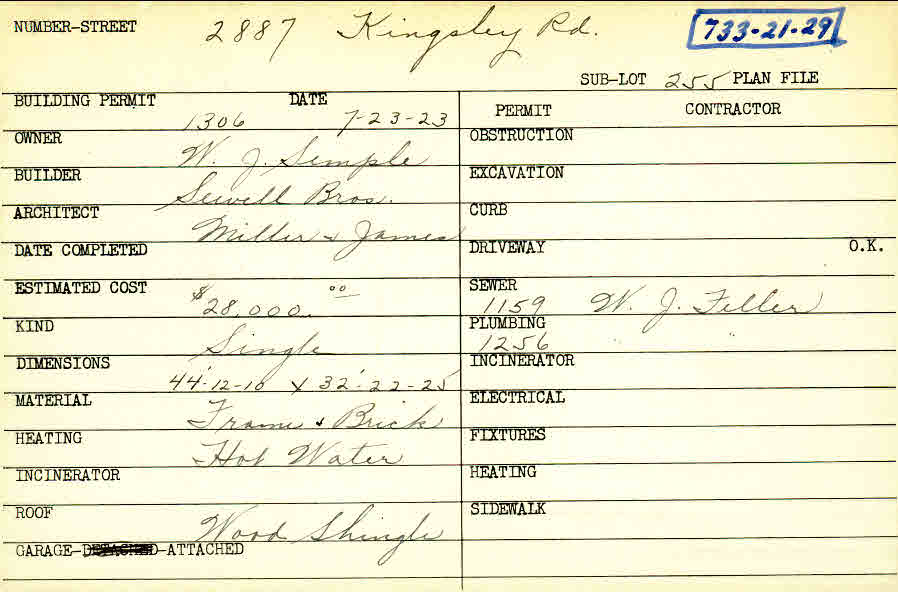 NUMBER-STREET 2887 Kingsley Rd. 733-21-29
SUB-LOT 255 PLAN FILE
BUILDING PERMIT 1306 DATE 7-23-23
PERMIT CONTRACTOR
OWNER W. J. Semple
OBSTRUCTION
BUILDER Sewell Bros.
EXCAVATION
ARCHITECT Miller & James
CURB
DATE COMPLETED
DRIVEWAY O.K.
ESTIMATED COST $28,000.00
SEWER 1159 W. J. Feller
KIND Single
PLUMBING 1256
DIMENSIONS 44'-12-10 x 32'-22-25
INCINERATOR
MATERIAL Frame & Brick
ELECTRICAL
HEATING Hot Water
FIXTURES
INCINERATOR
HEATING
ROOF Wood Shingle
SIDEWALK
GARAGE-DETACHED-ATTACHED